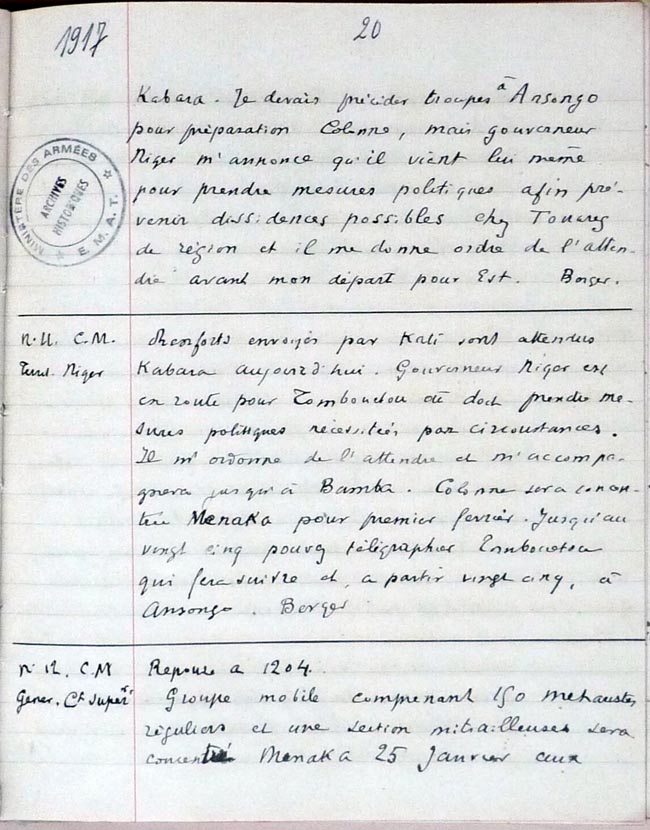 1917
20
Kabara. Je devais précéder troupes à Ansongo
pour préparation Colonne, mais gouverneur
Niger m'annonce qu'il vient lui même
pour prendre mesures politiques afin pré-
venir dissidences possibles chez Touareg
de région et il me donne ordre de l'atten-
dre avant mon départ pour Est. Berger.
MINISTÈRE DES ARMÉES
ARCHIVES
HISTORIQUES
E.M.A.T.
n. 11. C.M.
Niger
Renforts envoyés par Kati sont attendus
Kabara aujourd'hui. Gouverneur Niger est
en route pour Tombouctou où doit prendre me-
sures politiques nécessitées par circonstances.
Il m'ordonne de l'attendre et m'accompa-
gnera jusqu'à Bamba. Colonne sera concen-
trée Menaka pour premier février. Jusqu'au
vingt cinq pouvez télégraphier Tombouctou
qui fera suivre et, à partir vingt cinq, à
Ansongo. Berger
n. 12. C.M
Géner. Ct Supér
Réponse à 1204.
Groupe mobile comprenant 150 méharistes
réguliers et une section mitrailleuses sera
concentré Menaka 25 Janvier aux